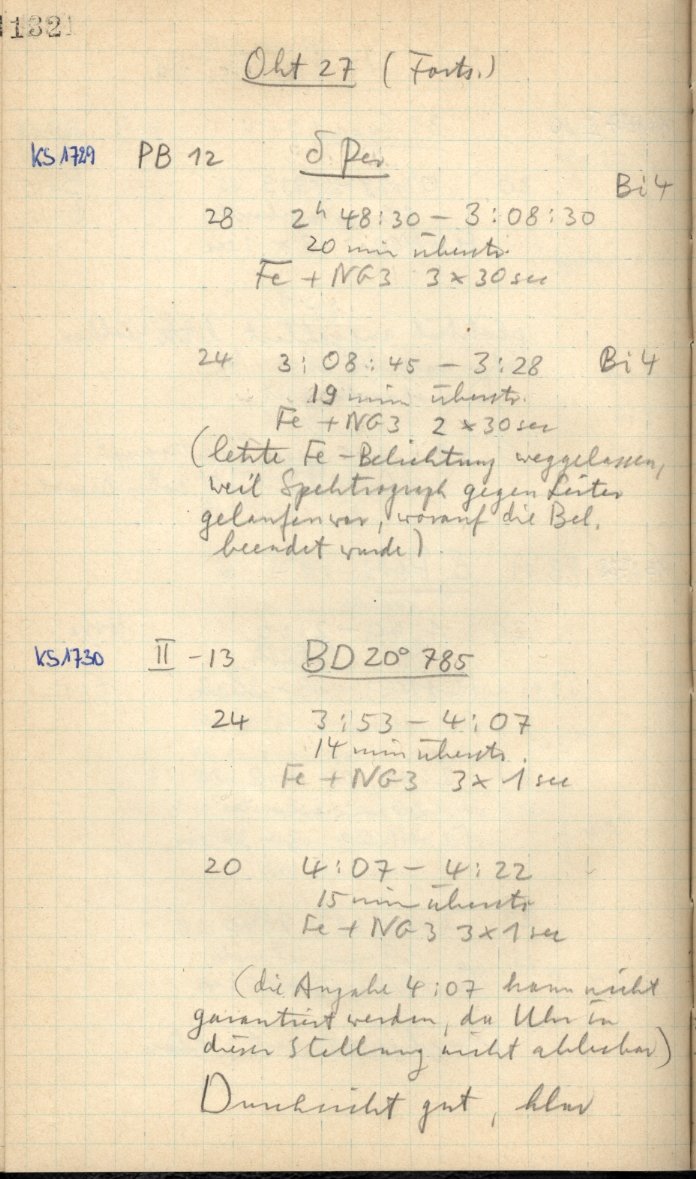 132
Okt 27 (Forts.)
KS 1729 PB 12 δ Per
Bi 4
28 2h 48:30 – 3:08:30
20 min überstr.
Fe + NG3 3 × 30 sec
24 3:08:45 – 3:28 Bi 4
19 min überstr.
Fe + NG3 2 × 30 sec
(letzte Fe-Belichtung weggelassen,
weil Spektrograph gegen Leiter
gelaufen war, worauf die Bel.
beendet wurde)
KS 1730 II - 13 BD 20° 785
24 3:53 – 4:07
14 min überstr.
Fe + NG3 3 × 1 sec
20 4:07 – 4:22
15 min überstr
Fe + NG3 3×1 sec
(die Angabe 4:07 kann nicht
garantiert werden, da Uhr in
dieser Stellung nicht ablesbar)
Durchsicht gut, klar